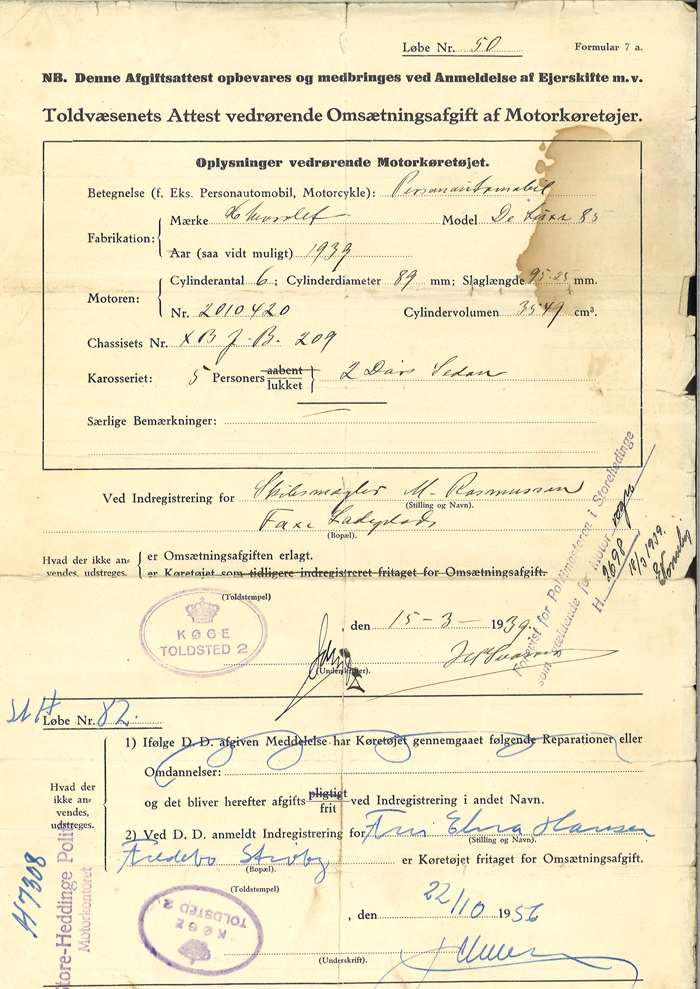 Løbe Nr. 50 Formular 7 a.
NB. Denne Afgiftsattest opbevares og medbringes ved Anmeldelse af Ejerskifte m.v.
Toldvæsenets Attest vedrørende Omsætningsafgift af Motorkøretøjer.
Oplysninger vedrørende Motorkøretøjet.
Betegnelse (f. Eks. Personautomobil, Motorcykle): Personautomobil
Mærke Chevrolet Model De Luxe 85
Fabrikation:
Aar (saa vidt muligt) 1939
Cylinderantal 6 ; Cylinderdiameter 89 mm; Slaglængde 95.25 mm.
Motoren:
Nr. 2010420 Cylindervolumen 3549 cm³.
Chassisets Nr. XB J-B. 209
Karosseriet: 5 Personers aabent lukket 2 Dørs Sedan
Særlige Bemærkninger:
Ved Indregistrering for Skibsmægler M. Rasmussen
(Stilling og Navn).
Faxe Ladeplads
(Bopæl).
Hvad der ikke anvendes, udstreges.
er Omsætningsafgiften erlagt.
er Køretøjet som tidligere indregistreret fritaget for Omsætningsafgift.
(Toldstempel)
KØGE
TOLDSTED 2
, den 15-3- 1939.
(Underskrifter).
Politimesteren i Storehedinge
H. 2698 18/3 1939.
St H
Løbe Nr. 82.
1) Ifølge D. D. afgiven Meddelelse har Køretøjet gennemgaaet følgende Reparationer eller
Omdannelser:
Hvad der ikke anvendes, udstreges.
og det bliver herefter afgifts pligtigt frit ved Indregistrering i andet Navn.
2) Ved D. D. anmeldt Indregistrering for Fru Elna Hansen
(Stilling og Navn).
Fredebo Strøby er Køretøjet fritaget for Omsætningsafgift.
(Bopæl).
(Toldstempel)
KØGE
TOLDSTED 2
, den 22/10 1956
(Underskrift).
H 7308
Store-Heddinge Politi
Motorkontoret